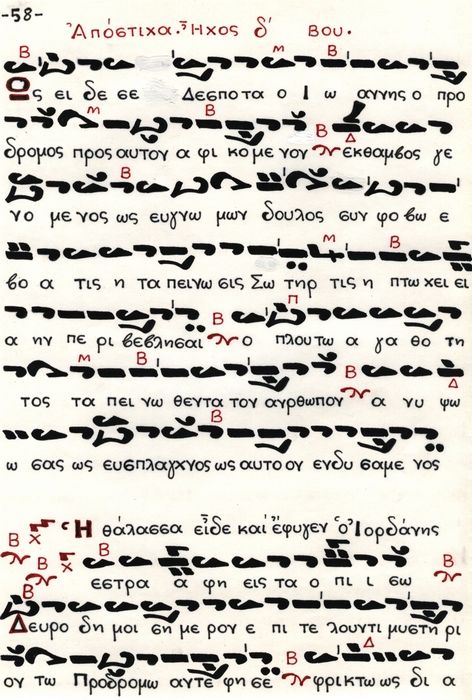 -58-
Ἀπόστιχα. Ἦχος δ' Βου.
Β Μ Β
Ος ει δε σε Δεσποτα ο Ι ω αννης ο προ
Μ Β Β Δ
δρομος προς αυτον α φι κο με νον εκθαμβος γε
Β
νο με νος ως ευγνω μων δουλος συν φο βω ε
Μ Β
βο α τις η τα πεινω σις Σω τηρ τις η πτω χει ει
Β Π
α ην πε ρι βεβλησαι ο πλουτω α γα θο τη
Μ Β Β Δ
τος τα πει νω θεντα τον ανρθωπον α νυ ψω
Β
ω σας ως ευσπλαγχνος ως αυτον ον ενδυ σαμε νος
Β χ Ἡ θάλασσα εἶδε καί ἔφυγεν ὁ Ἰορδάνης
Β χ Β Β
εστρα α φη εις τα ο πι ι σω
Β
Δευρο δη μοι ση με ρον ε πι τε λουντι μυστη ρι
Β Δ
ον τω Προδρομω αντε φη σε φρικτως δι α